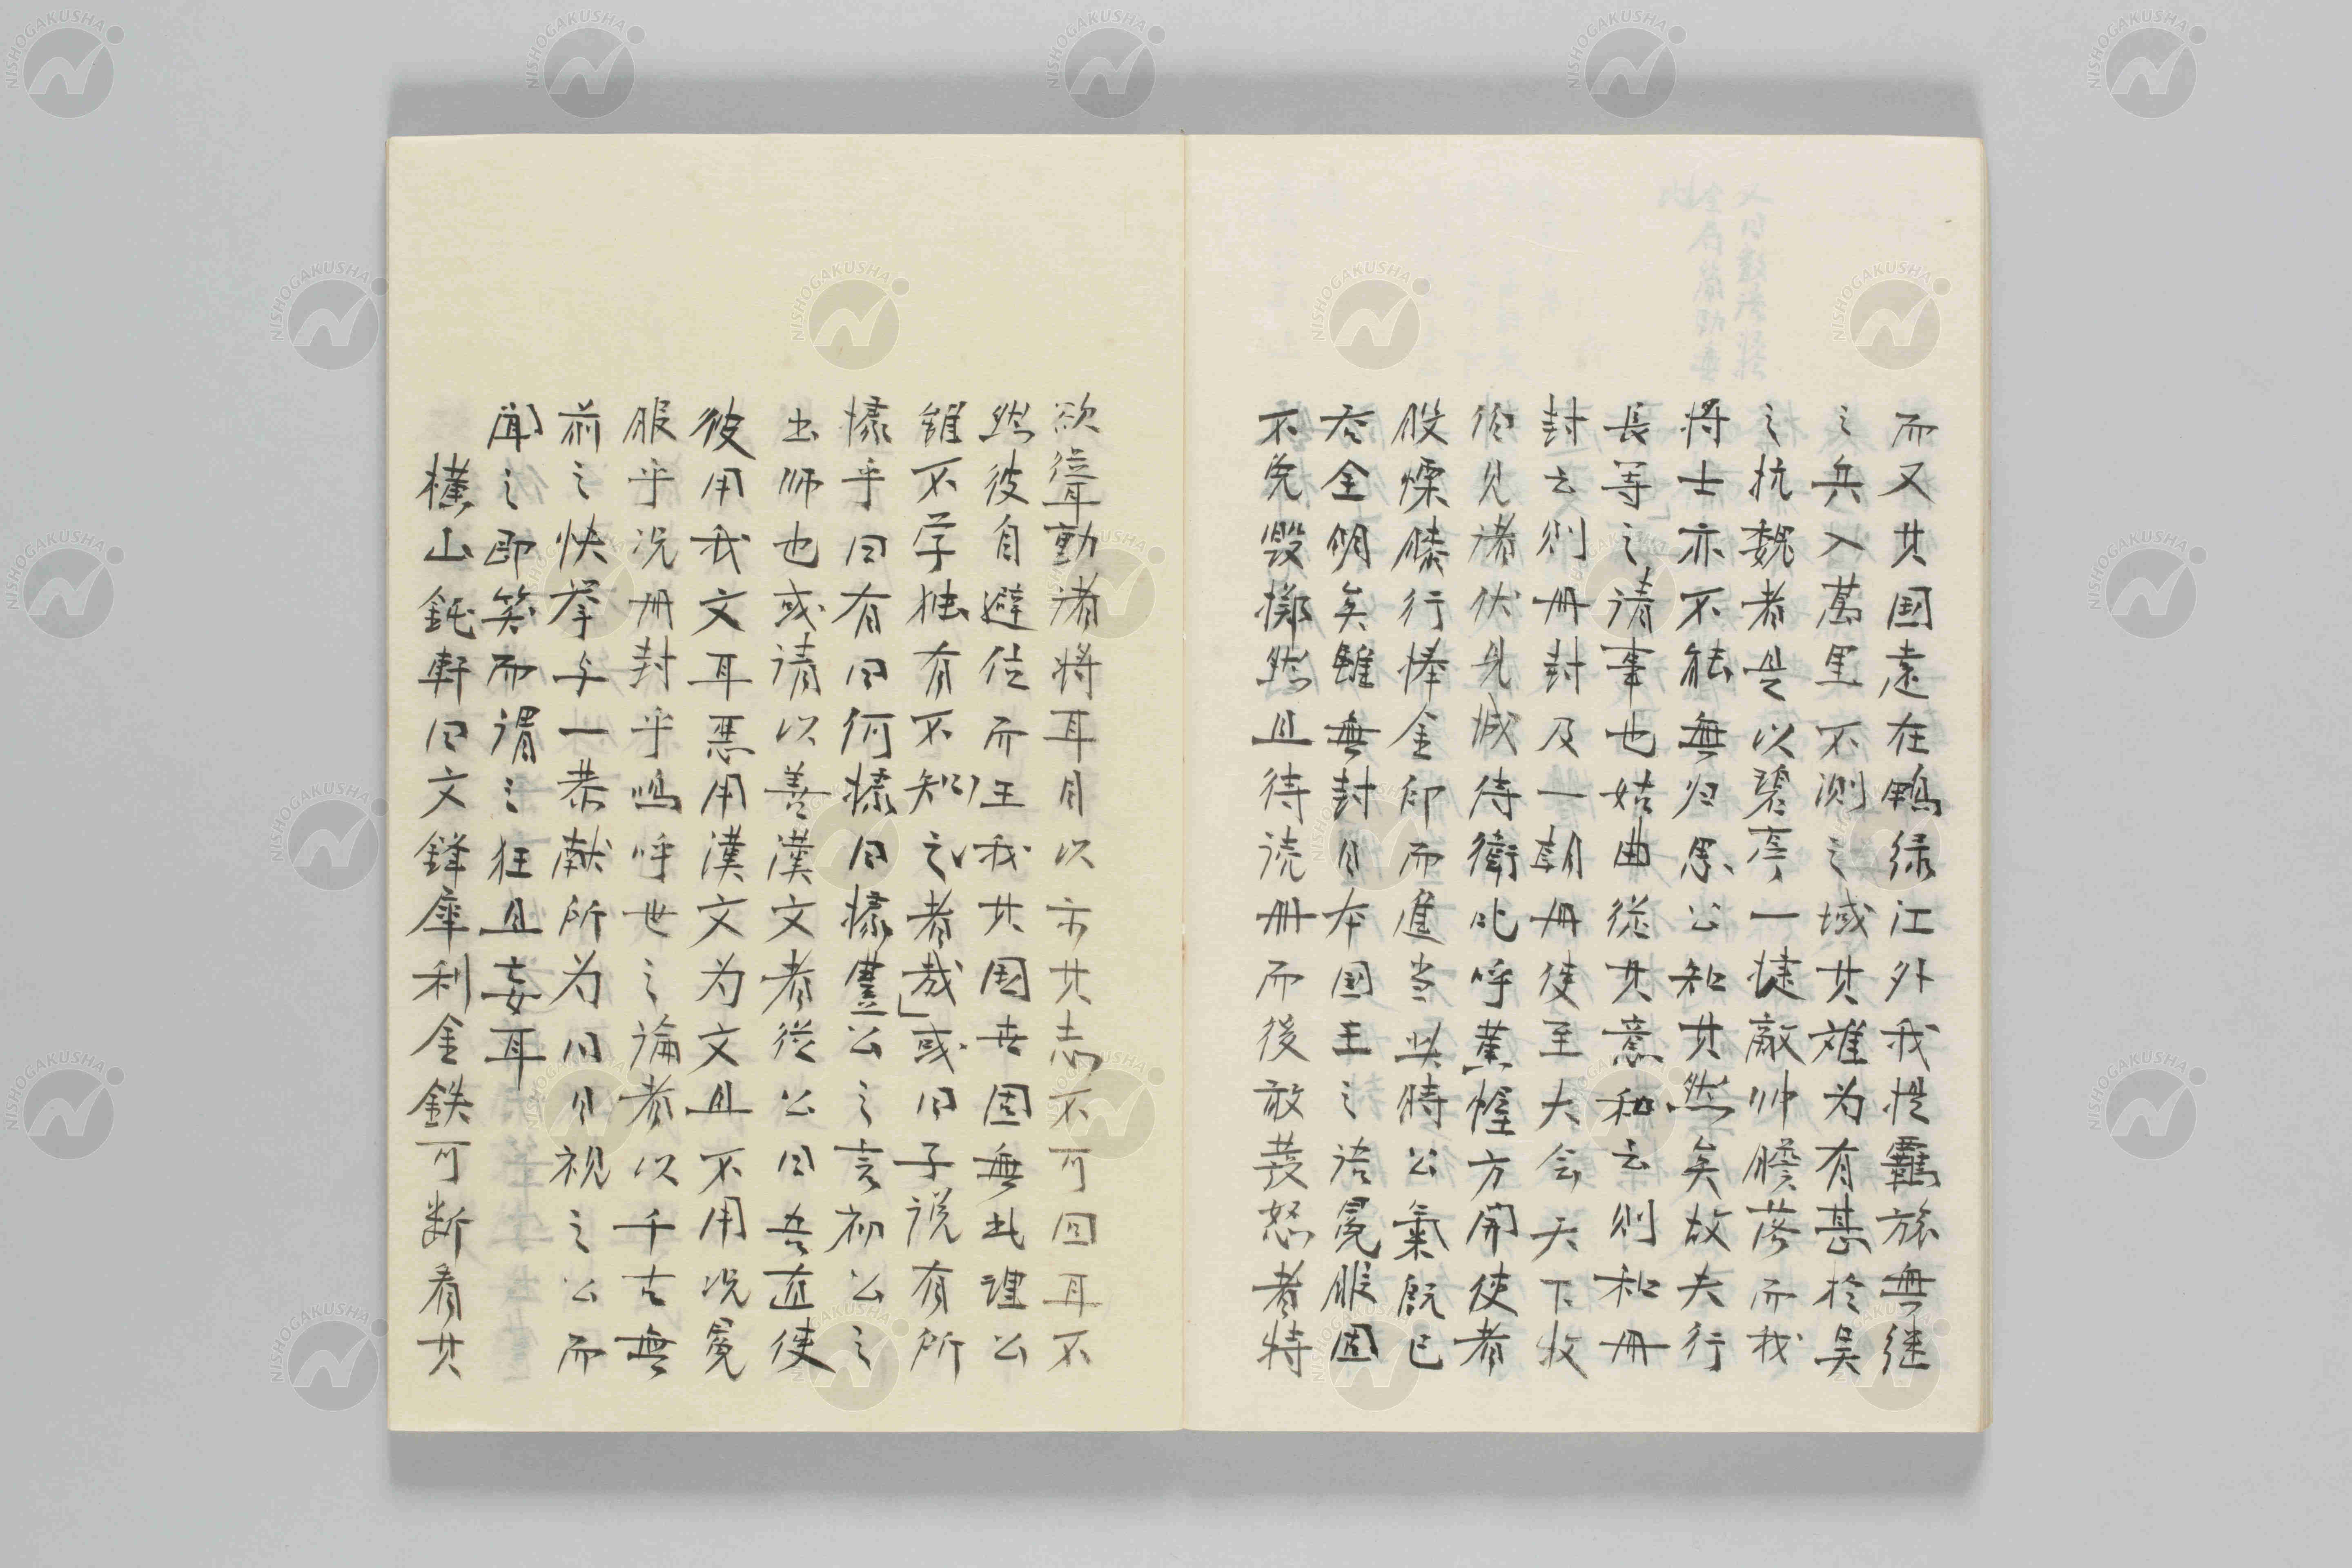 而又其国遠在鴨緑江外我提羈旅無継
之兵入萬里不測之域其難为有甚於吴
之抗魏者是以碧亭一捷敵帅膽落而我
将士亦不能無归思公知其然矣故夫行
長等之請事也姑曲從其意和云則和册
封云則册封及一朝册使至大会天下牧
伯見諸伏見城待衛叱呼黄幄方開使者
股慄膝行捧金印而進当此時公氣既已
吞全明矣雖無封日本国王之語冕服固
不免毀擲然且待読册而後敢發怒者特
欲聳動諸将耳目以示其志不可回耳不
然彼自避位而王我其国吉固無此理公
雖不学独有不知之者哉」或曰子説有所
據乎曰有曰何據曰據豊公之言初公之
出师也或請以善漢文者從公曰吾直使
彼用我文耳悪用漢文为文且不用况冕
服乎况册封乎嗚呼世之論者以千古無
前之快挙与一恭献所为同日視之公而
聞之即笑而謂之狂且妄耳
横山鈍軒曰文鋒犀利金鉄可断看其
NISHOGAKUSHA